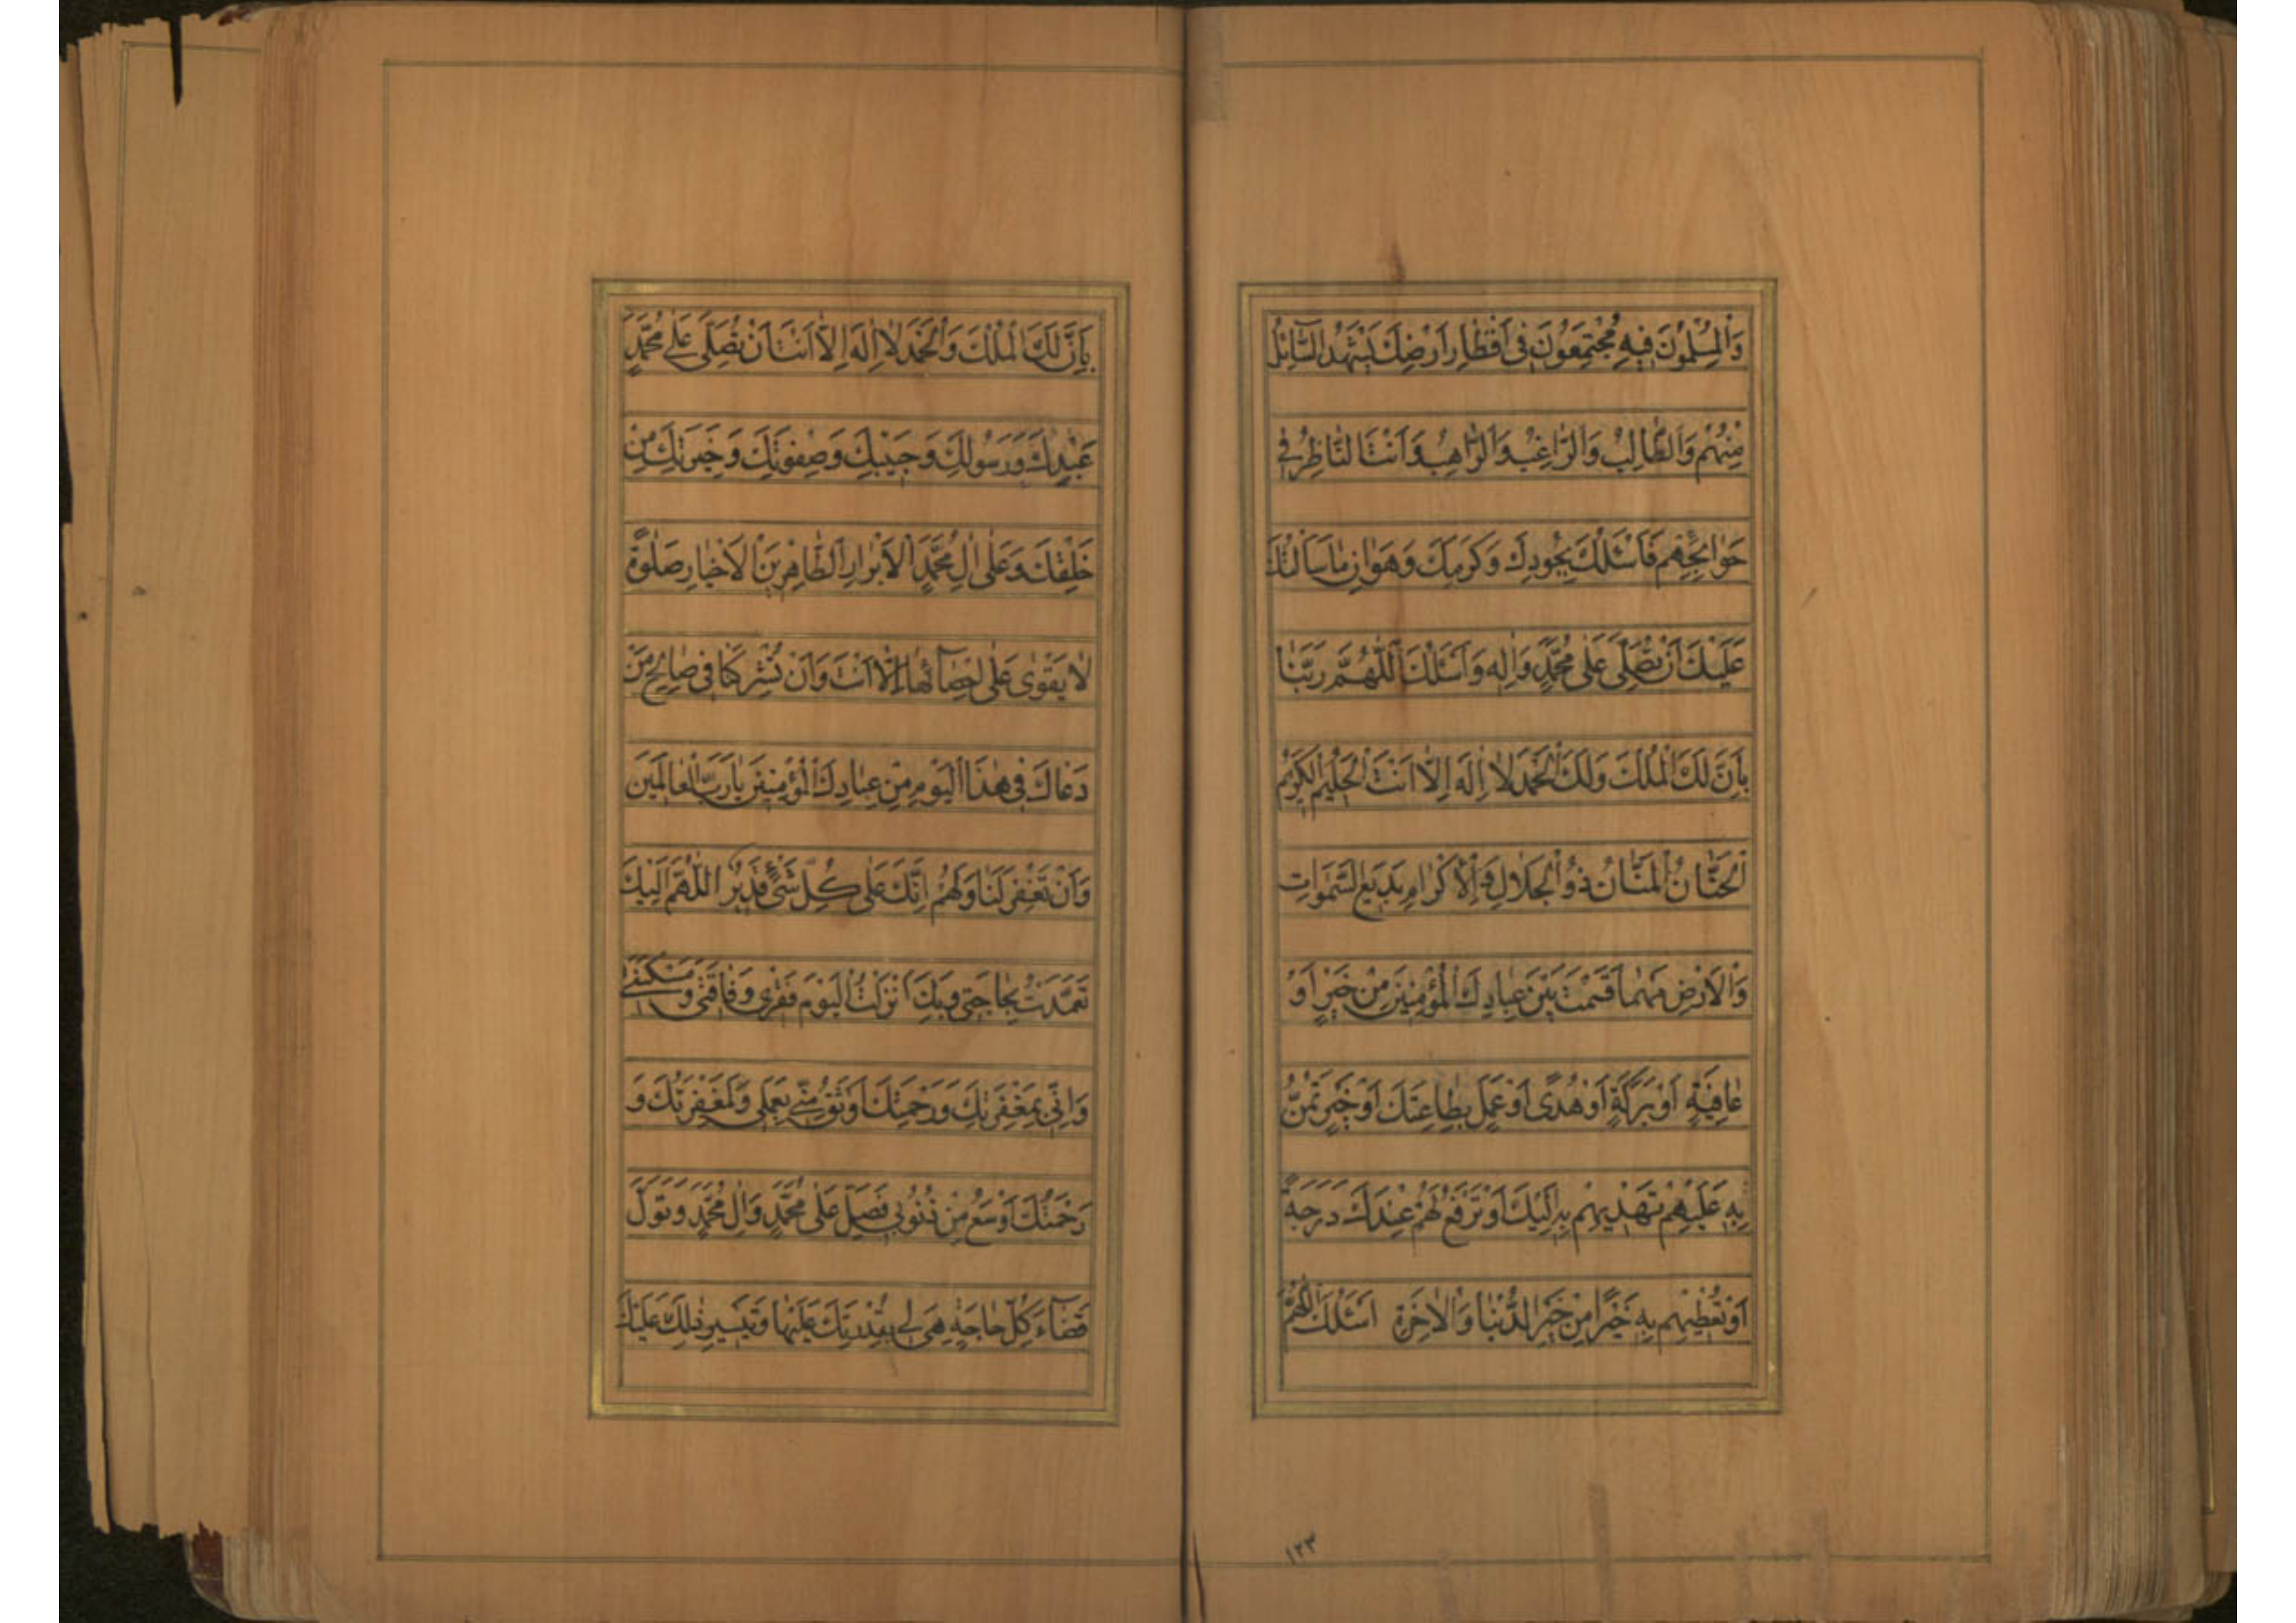 وَالْمُسْلِمُونَ فِيهِ مُجْتَمِعُونَ فِى اَقْطَارِ اَرْضِكَ يَشْهَدُ السَّآئِلُ
مِنْهُمْ وَالطَّالِبُ وَالرَّاغِبُ وَالرَّاهِبُ وَاَنْتَ النَّاظِرُ فِى
حَوَائِجِهِم فَاَسْئَلُكَ بِجُودِكَ وَكَرَمِكَ وَهَوَانِ مَا سَاَلْتُكَ
عَلَيْكَ اَنْ تُصَلِّىَ عَلَى مُحَمَّدٍ وَاٰلِهِ وَاَسْئَلُكَ اللّٰهُمَّ رَبَّنَا
بِاَنَّ لَكَ الْمُلْكَ وَلَكَ الْحَمْدَ لَا اِلٰهَ اِلَّا اَنْتَ الْحَلِيمُ الْكَرِيمُ
الْحَنَّانُ الْمَنَّانُ ذُو الْجَلَالِ وَالْاِكْرَامِ بَدِيعُ السَّمٰوَاتِ
وَالْاَرْضِ مَهْمَا قَسَمْتَ بَيْنَ عِبَادِكَ الْمُؤْمِنِينَ مِنْ خَيْرٍ اَوْ
عَافِيَةٍ اَوْ بَرَكَةٍ اَوْ هُدًى اَوْ عَمَلٍ بِطَاعَتِكَ اَوْ خَيْرٍ تَمُنُّ
بِهِ عَلَيْهِمْ تَهْدِيهِمْ بِهِ اِلَيْكَ اَوْ تَرْفَعُ لَهُمْ عِنْدَكَ دَرَجَةً
اَوْ تُعْطِيهِم بِهِ خَيْرًا مِنْ خَيْرِ الدُّنْيَا وَالْاٰخِرَةِ اَسْئَلُكَ اللّٰهُمَّ
١٢٣
بِاَنَّ لَكَ الْمُلْكَ وَالْحَمْدَ لَا اِلٰهَ اِلَّا اَنْتَ اَنْ تُصَلِّىَ عَلَى مُحَمَّدٍ
عَبْدِكَ وَرَسُولِكَ وَحَبِيبِكَ وَصِفْوَتِكَ وَخِيَرَتِكَ مِنْ
خَلْقِكَ وَعَلٰى اٰلِ مُحَمَّدٍ الْاَبْرَارِ الطَّاهِرِينَ الْاَخْيَارِ صَلٰوةً
لَا يَقْوٰى عَلٰى اِحْصَآئِهَا اِلَّا اَنْتَ وَاَنْ تُشْرِكَنَا فِى صَالِحِ مَنْ
دَعَاكَ فِى هٰذَا الْيَوْمِ مِنْ عِبَادِكَ الْمُؤْمِنِينَ يَا رَبَّ الْعَالَمِينَ
وَاَنْ تَغْفِرَ لَنَا وَلَهُمْ اِنَّكَ عَلٰى كُلِّ شَىْءٍ قَدِيرٌ اللّٰهُمَّ اِلَيْكَ
تَعَمَّدْتُ بِحَاجَتِى وَبِكَ اَنْزَلْتُ الْيَوْمَ فَقْرِى وَفَاقَتِى وَمَسْكَنَتِى
وَاِنِّى بِمَغْفِرَتِكَ وَرَحْمَتِكَ اَوْثَقُ مِنِّى بِعَمَلِى وَلَمَغْفِرَتُكَ وَ
رَحْمَتُكَ اَوْسَعُ مِنْ ذُنُوبِى فَصَلِّ عَلٰى مُحَمَّدٍ وَاٰلِ مُحَمَّدٍ وَتَوَلَّ
قَضَآءَ كُلِّ حَاجَةٍ هِىَ لِى بِقُدْرَتِكَ عَلَيْهَا وَتَيْسِيرِ ذٰلِكَ عَلَيْكَ